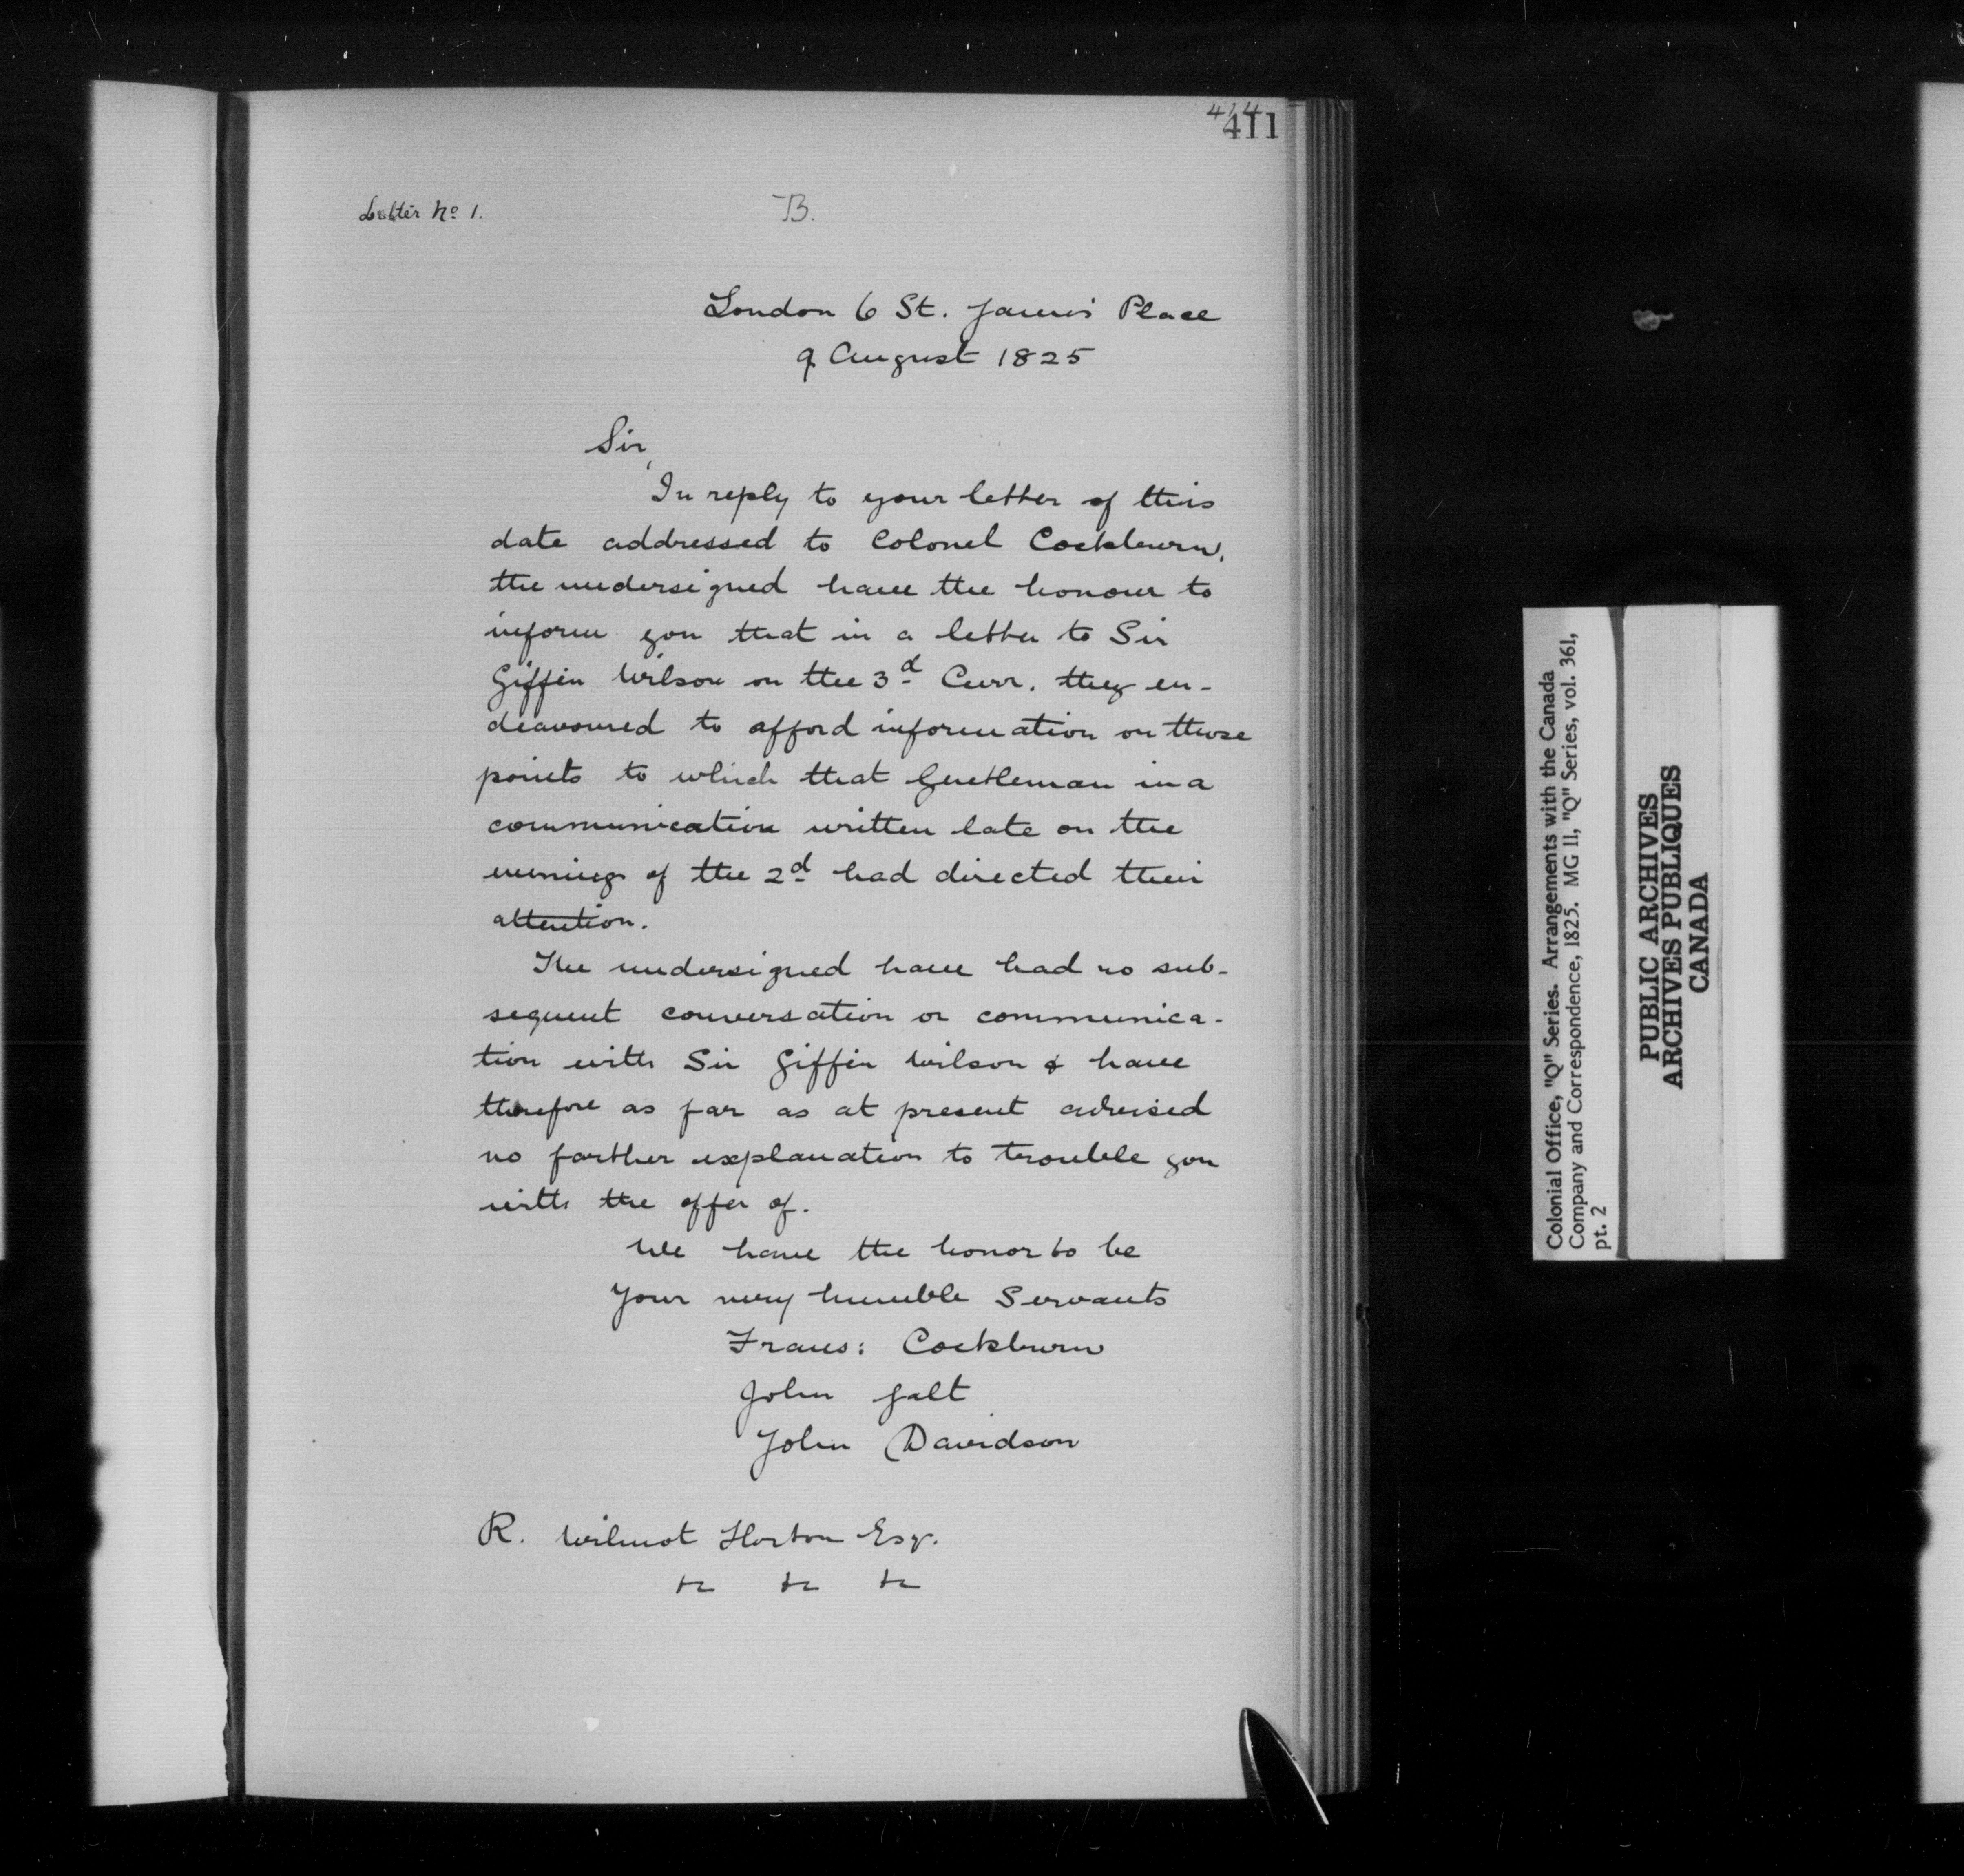 411
Letter No 1.
B.
London 6 St. James' Place
9 August 1825
Sir,
In reply to your letter of this
date addressed to Colonel Cockburn,
the undersigned have the honour to
inform you that in a letter to Sir
Giffin Wilson on the 3d Curr. they en-
deavoured to afford information on those
points to which that Gentleman in a
communication written late on the
evening of the 2d had directed their
attention.
The undersigned have had no sub-
sequent conversation or communica-
tion with Sir Giffin Wilson & have
therefore as far as at present advised
no farther explanation to trouble you
with the offer of.
We have the honor to be
Your very humble Servants
Frans: Cockburn
John Galt
John Davidson
R. Wilmot Horton Esqr.
&c &c &c
Colonial Office, "Q" Series. Arrangements with the Canada
Company and Correspondence, 1825. MG 11, "Q" Series, vol. 361,
pt. 2
PUBLIC ARCHIVES
ARCHIVES PUBLIQUES
CANADA